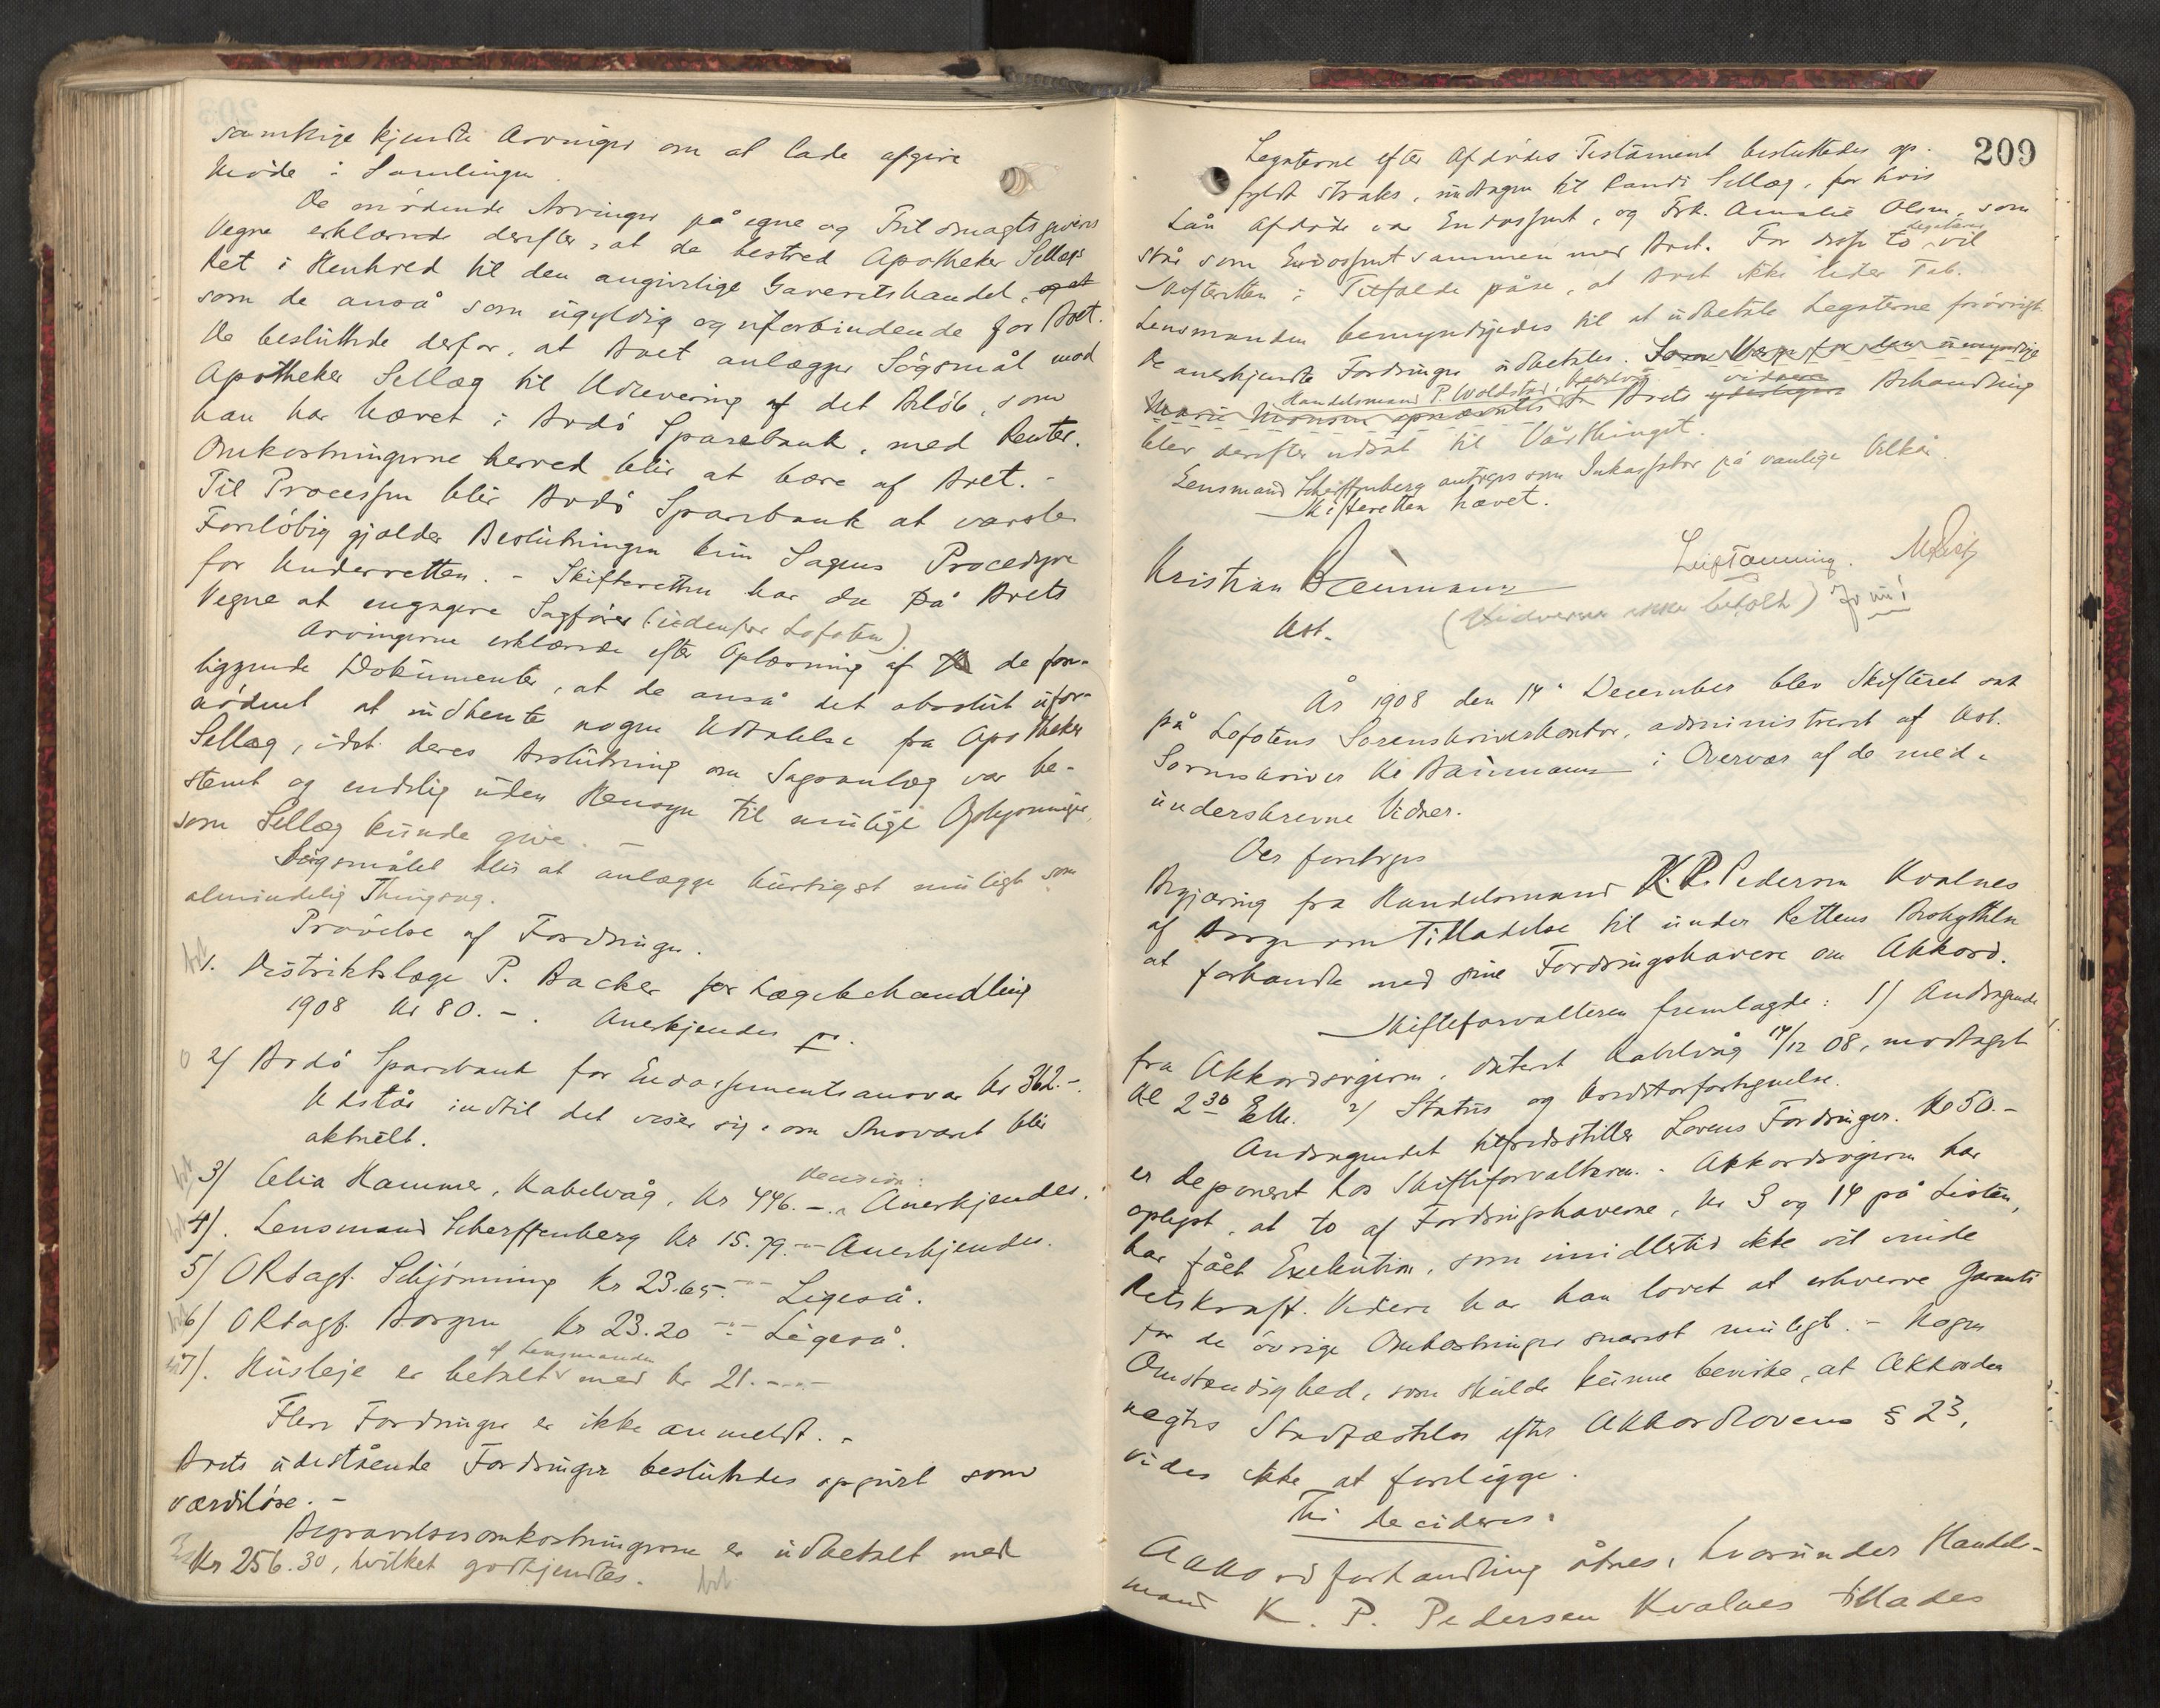 samtlige kjendte Arvinger om at lade afgive
Møde i Samlingen.
De mødende Arvinger på egne og Fuldmagtsgiveres
Vegne erklærede derefter, at de bestred Apotheker Sellægs
Ret i Henhold til den angivelige Gaveretshandel, og at
som de anså som ugyldig og uforbindende for Boet.
De besluttede derfor, at Boet anlægger Søgsmål mod
Apotheker Sellæg til Udlevering af det Beløb, som
han har hævet i Bodø Sparebank, med Renter.
Omkostningerne herved blir at bære af Boet. -
Til Processen blir Bodø Sparebank at varsle.
Foreløbig gjælder Beslutningen kun Sagens Procedyre
for Underretten. - Skifteretten har da på Boets
Vegne at engagere Sagfører (udenfor Lofoten).
Arvingerne erklærede efter Oplæsning af de fore-
liggende Dokumenter, at de anså det absolut ufor-
nødent at indhente nogen Udtalelse fra Apotheker
Sellæg, idet deres Beslutning om Sagsanlæg var be-
stemt og endelig uden Hensyn til mulige Oplysninger,
som Sellæg kunde give. -
Søgsmålet blir at anlægge hurtigst muligt som
almindelig Thingsag.
Prøvelse af Fordringer.
1. Distriktslæge P. Backer for Lægebehandling
1908 Kr 80. - . Anerkjendes pr.
2/ Bodø Sparebank for Endossementsansvar Kr 362.-.
Udstår indtil det viser sig, om Ansvaret blir
aktuelt.
3/ Celia Hammer, Kabelvåg, Kr 446. -. Anerkjendes.
4/. Lensmand Scherffenberg Kr 15.79. - Anerkjendes.
5/ ORsagf. Schjønning Kr 23.65. - Ligeså.
6/ ORsagf. Borgen Kr 23.20 - Ligeså.
af Lensmanden
7/. Husleje er betalt med kr 21. -
Flere Fordringer er ikke anmeldt. -
Boets udestående Fordringer besluttedes opgivet som
værdiløse. -
Begravelsesomkostningerne er udbetalt med
Kr 256.30, hvilket godkjendtes.
209
Legaterne efter Afdødes Testament besluttedes op-
fyldt straks, undtagen til Randi Sellæg, for hvis
Lån Afdøde var Endossent, og Frk. Amalie Olsen, som
står som Endossent sammen med Boet. For disse to Legatarer vil
Skifteretten i Tilfælde påse, at Boet ikke lider Tab.
Lensmanden bemyndigedes til at udbetale Legaterne forøvrigt.
De anerkjendte Fordringer udbetales. Som Værge for den umyndige
Handelsmand P. Woldstad, Kabelvåg
Marie Monsen opnævntes Boets yderligere videre Behandling
blev derefter udsat til Vårthinget.
Lensmand Scherffenberg antoges som Inkassator på vanlige Vilkår.
Skifteretten hævet.
Kristian Baumann
Kst.
(Vidnerne ikke betalt)
År 1908 den 14. December blev Skifteret sat
på Lofotens Sorenskriverkontor, administreret af kst.
Sorenskriver Kr Baumann i Overvær af de med-
underskrevne Vidner.
Der foretoges
Begjæring fra Handelsmand K. P. Pedersen Kvalnes
af Borge om Tilladelse til under Rettens Beskyttelse
at forhandle med sine Fordringshavere om Akkord.
Skifteforvalteren fremlagde: 1/ Andragende
fra Akkordsøgeren, dateret Kabelvåg 14/12 08, modtaget
Kl 2 30 EM. 2/ Status og Kreditorfortegnelse.
Andragendet tilfredsstiller Lovens Fordringer. Kr 50. -
er deponeret hos Skifteforvalteren. - Akkordsøgeren har
oplyst, at to af Fordringshaverne, Nr 3 og 14 på Listen,
har fået Exekution, som imidlertid ikke vil vinde
Retskraft. Videre har han lovet at erhverve Garanti
for de øvrige Omkostninger snarest muligt. - Nogen
Omstændighed, som skulde kunne bevirke, at Akkorden
nægtes Stadfæstelse efter Akkordlovens § 23,
vides ikke at foreligge.
Thi decideres:
Akkordforhandling åbnes, hvorunder Handels-
mand K. P. Pedersen Kvalnes tillades